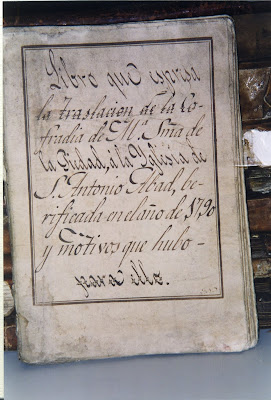 Libro que espresa
la traslacion de la Co-
fradia de N.ª Sra de
la Piedad, a la Yglesia de
S. Antonio Abad, be-
rificada en el año de 1790
y motivos que hubo-
para ello.